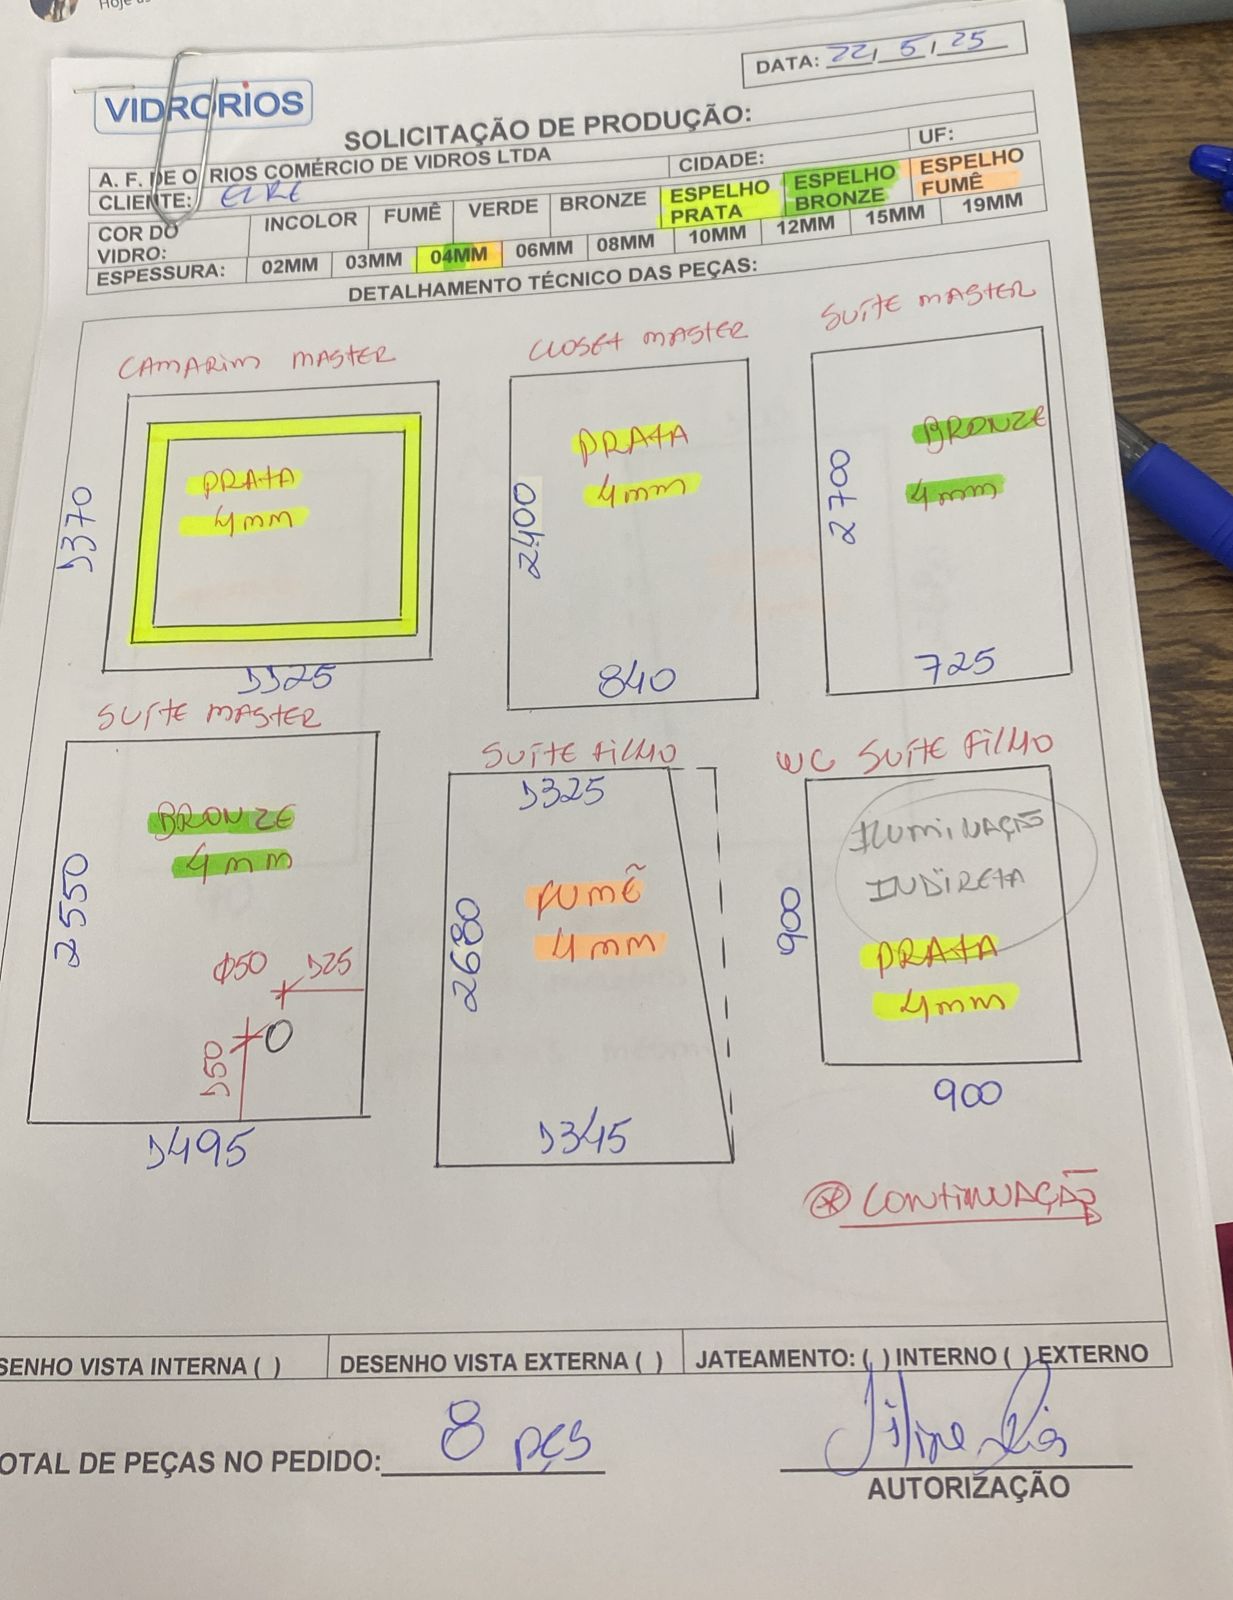 DATA: 22/5/25
VIDRORIOS
SOLICITAÇÃO DE PRODUÇÃO:
A. F. DE O RIOS COMÉRCIO DE VIDROS LTDA
CIDADE:
UF:
CLIENTE:
COR DO VIDRO:
INCOLOR
FUMÊ
VERDE
BRONZE
ESPELHO PRATA
ESPELHO BRONZE
ESPELHO FUMÊ
ESPESSURA:
02MM
03MM
04MM
06MM
08MM
10MM
12MM
15MM
19MM
DETALHAMENTO TÉCNICO DAS PEÇAS:
CAMARIM MASTER
PRATA
4mm
1370
1125
CLOSET MASTER
PRATA
4mm
2400
840
SUÍTE MASTER
BRONZE
4mm
2700
725
SUÍTE MASTER
BRONZE
4mm
2550
Φ50
125
150
1495
SUÍTE FILHO
1325
FUMÊ
4mm
2680
1345
WC SUÍTE FILHO
ILUMINAÇÃO
INDIRETA
PRATA
4mm
900
900
CONTINUAÇÃO
SENHO VISTA INTERNA ( )
DESENHO VISTA EXTERNA ( )
JATEAMENTO: ( ) INTERNO ( ) EXTERNO
OTAL DE PEÇAS NO PEDIDO: 8 pçs
AUTORIZAÇÃO